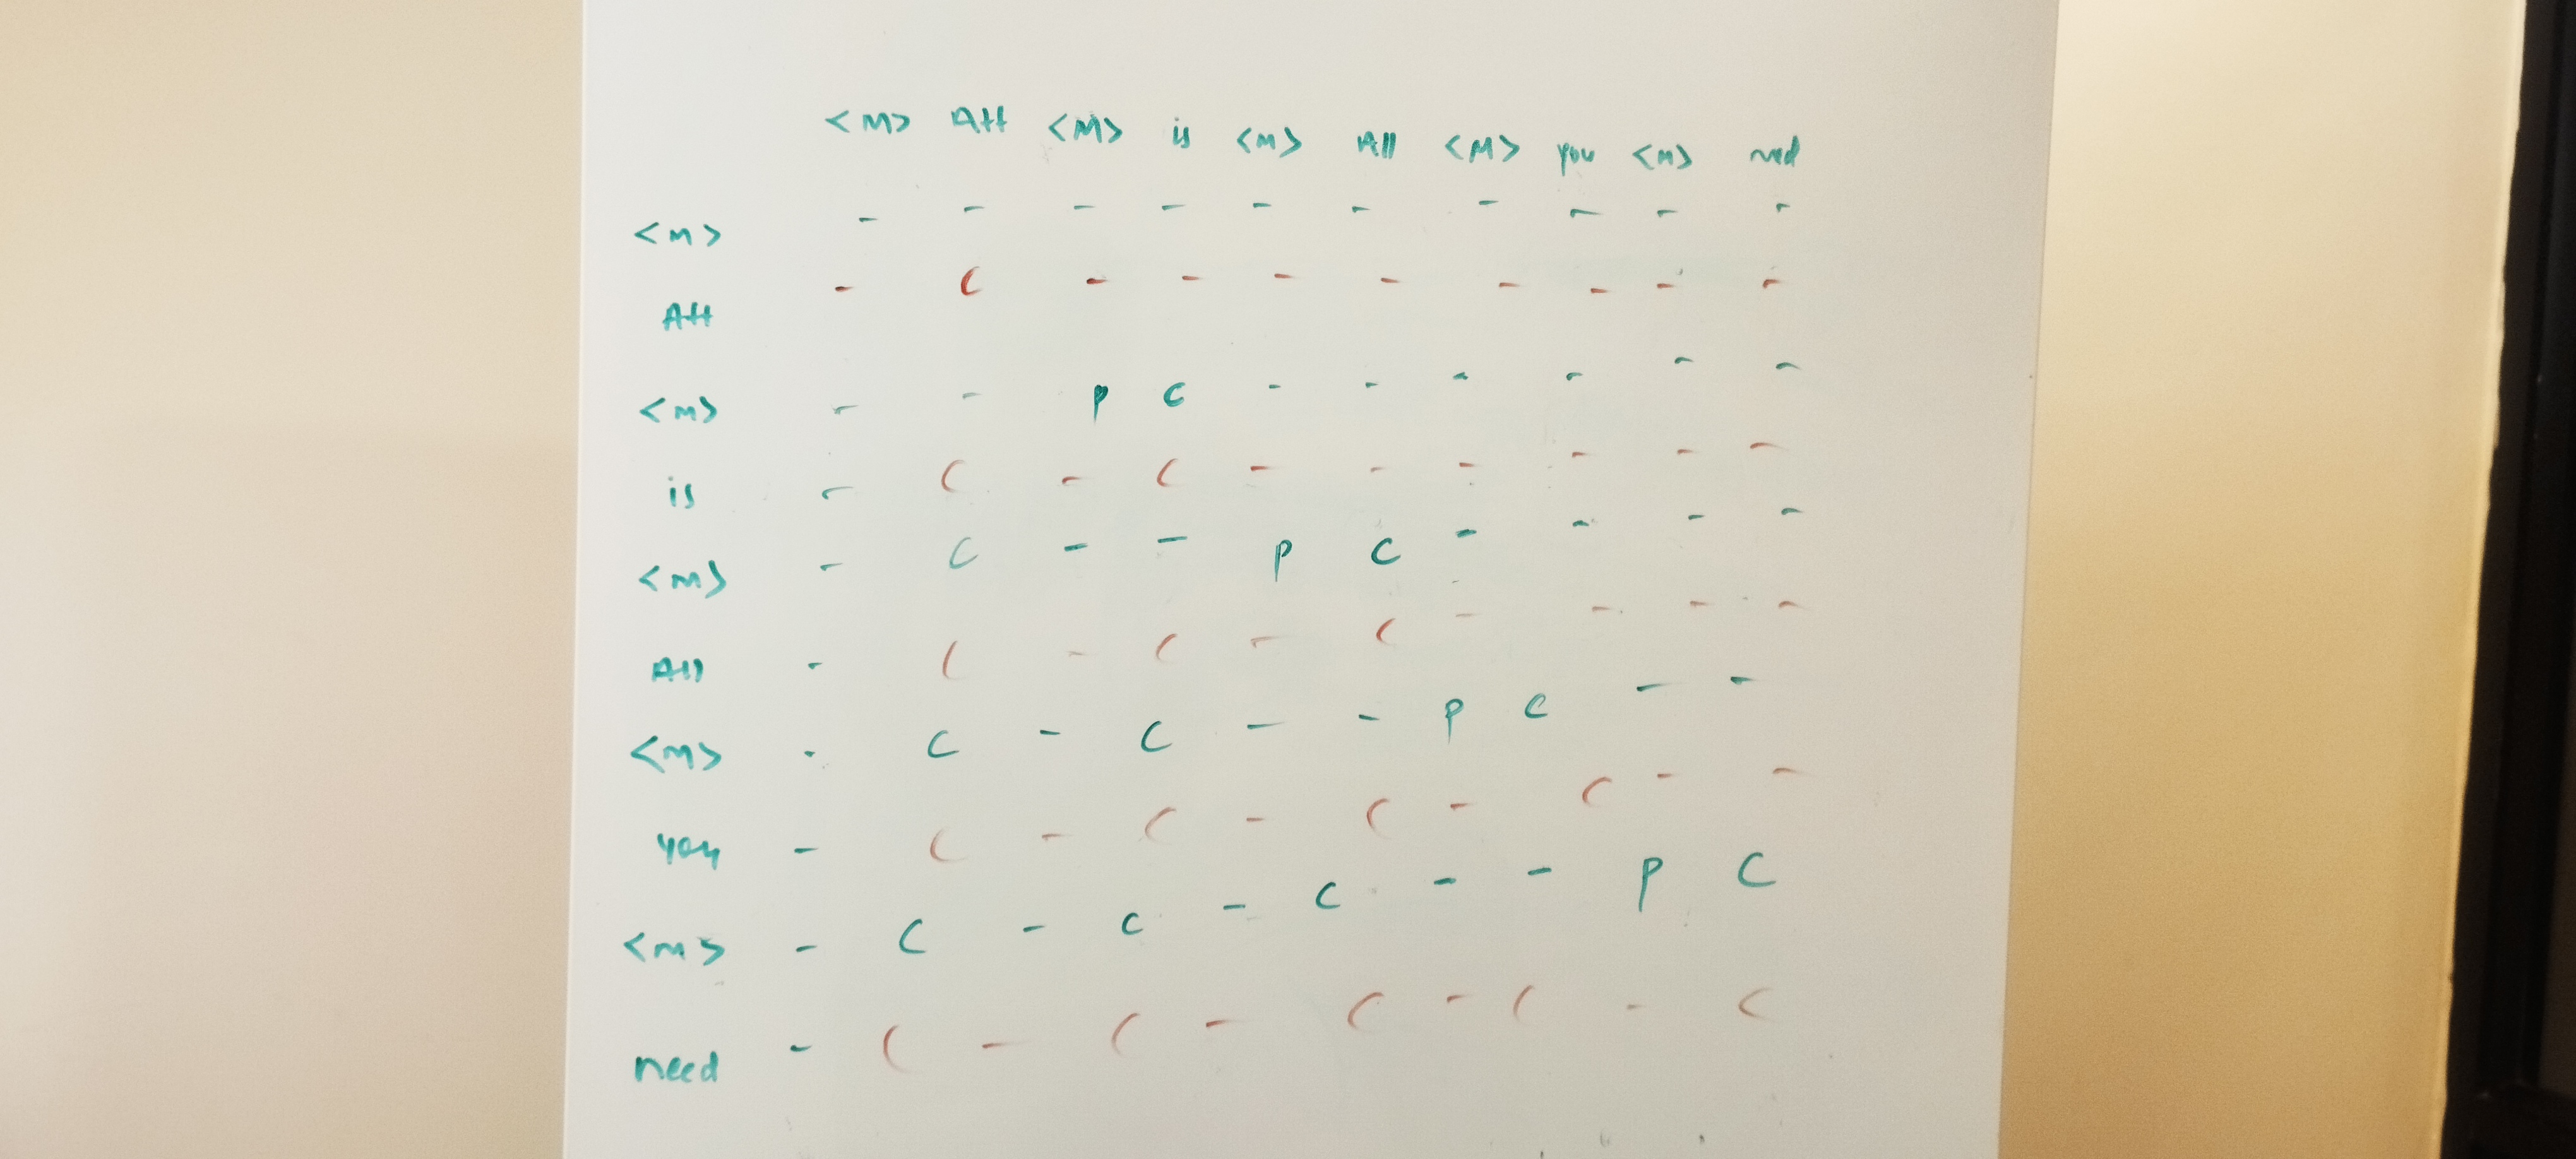 <M> Att <M> is <M> All <M> you <M> need
<M> - - - - - - - - - -
Att - C - - - - - - - -
<M> - - P C - - - - - -
is - C - C - - - - - -
<M> - C - - P C - - - -
All - C - C - C - - - -
<M> - C - C - - P C - -
you - C - C - C - C - -
<M> - C - C - C - - P C
need - C - C - C - C - C